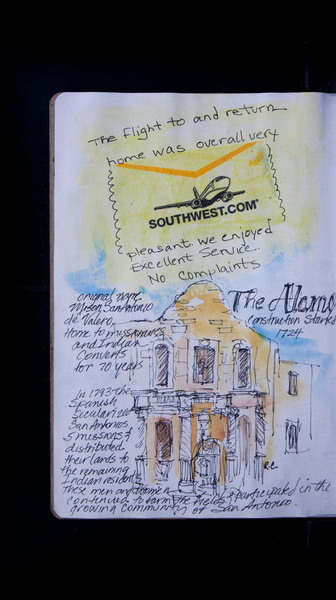 The Flight to and return
home was overall very
SOUTHWEST.COM®
pleasant. we enjoyed
Excellent Service.
No Complaints
The Alamo
Construction Started
1724
original name
Mission San Antonio
de Valero.
Home to missionaries
and Indian
Converts
for 70 years
In 1793 the
Spanish
Secularized
San Antonios
5 missions &
distributed
their lands to
the remaining
Indian residents
these men and women
continued to farm the fields & participated in the
growing community of San Antonio.
R.C.